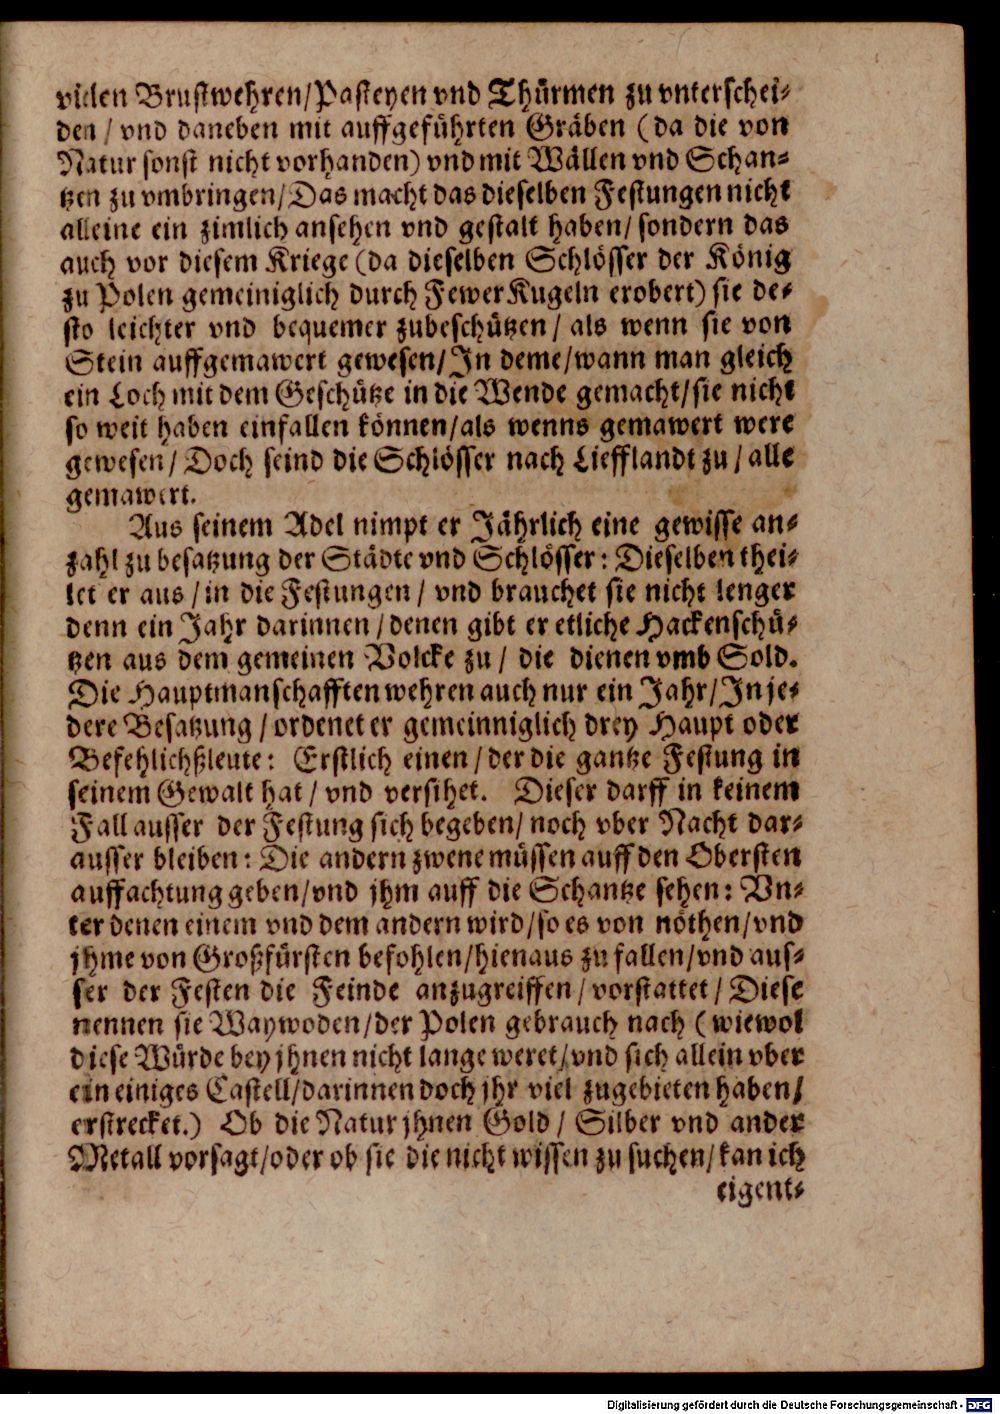 vielen Brustwehren/Pasteyen vnd Thürmen zu vnterschei-
den/ vnd daneben mit auffgeführten Gräben (da die von
Natur sonst nicht vorhanden) vnd mit Wällen vnd Schan-
tzen zu vmbringen/Das macht das dieselben Festungen nicht
alleine ein zimlich ansehen vnd gestalt haben/ sondern das
auch vor diesem Kriege (da dieselben Schlösser der König
zu Polen gemeiniglich durch FewerKugeln erobert) sie de-
sto leichter vnd bequemer zubeschützen/ als wenn sie von
Stein auffgemawert gewesen/In deme/wann man gleich
ein Loch mit dem Geschütze in die Wende gemacht/sie nicht
so weit haben einfallen können/als wenns gemawert were
gewesen/ Doch seind die Schlösser nach Liefflandt zu/ alle
gemawert.
Aus seinem Adel nimpt er Jährlich eine gewisse an-
zahl zu besatzung der Städte vnd Schlösser: Dieselben thei-
let er aus/in die Festungen/ vnd brauchet sie nicht lenger
denn ein Jahr darinnen/denen gibt er etliche Hackenschü-
tzen aus dem gemeinen Volcke zu/ die dienen vmb Sold.
Die Hauptmanschafften wehren auch nur ein Jahr/In je-
dere Besatzung/ordenet er gemeinniglich drey Haupt oder
Befehlichßleute: Erstlich einen/der die gantze Festung in
seinem Gewalt hat/ vnd versihet. Dieser darff in keinem
Fall ausser der Festung sich begeben/ noch vber Nacht dar-
ausser bleiben: Die andern zwene müssen auff den Obersten
auffachtung geben/vnd jhm auff die Schantze sehen: Vn-
ter denen einem vnd dem andern wird/so es von nöthen/vnd
jhme von Großfürsten befohlen/hienaus zu fallen/vnd aus-
ser der Festen die Feinde anzugreiffen/ vorstattet/ Diese
nennen sie Waywoden/der Polen gebrauch nach (wiewol
diese Würde bey jhnen nicht lange weret/vnd sich allein vber
ein einiges Castell/darinnen doch jhr viel zugebieten haben/
erstrecket.) Ob die Natur jhnen Gold/ Silber vnd ander
Metall vorsagt/oder ob sie die nicht wissen zu suchen/kan ich
eigent-
Digitalisierung gefördert durch die Deutsche Forschungsgemeinschaft - DFG